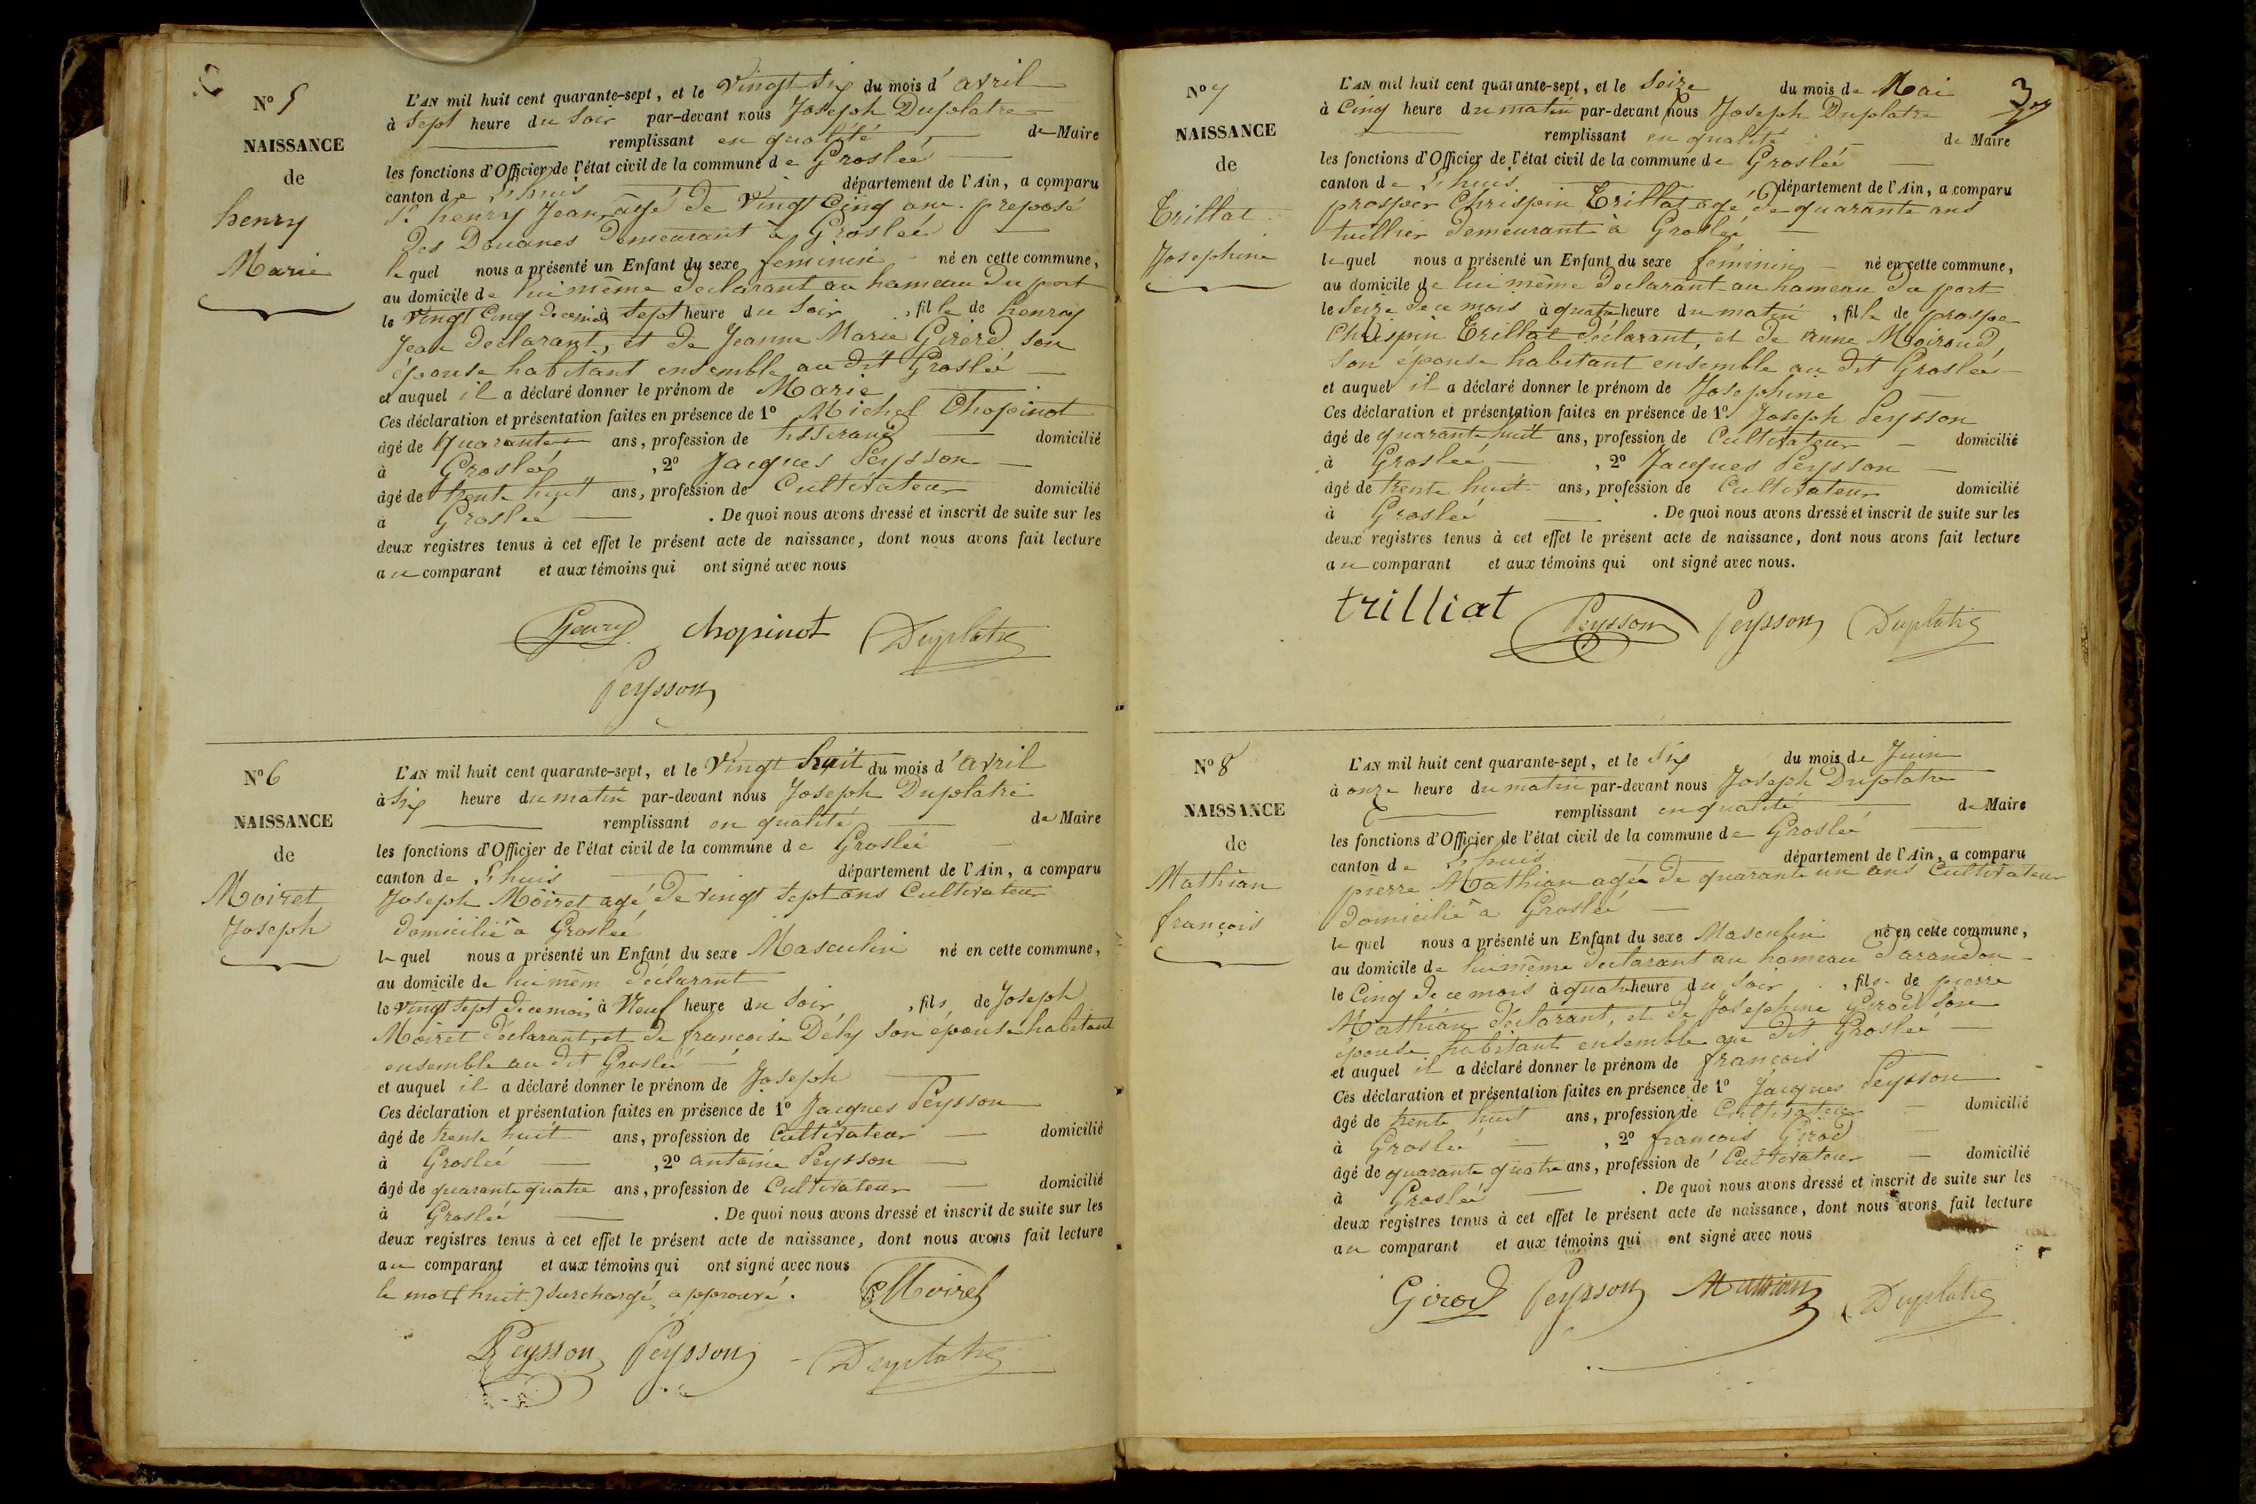 N° 5
NAISSANCE
de
henry
Marie
L'AN mil huit cent quarante-sept, et le Vingt Six du mois d'avril
à Sept heure du Soir par-devant nous Joseph Duplatre
remplissant en qualité de Maire
les fonctions d'Officier de l'état civil de la commune de Groslée
canton de Lhuis département de l'Ain, a comparu
Sr henry Jean, agé de Vingt Cinq ans. preposé
des Douanes demeurant à Groslée
lequel nous a présenté un Enfant du sexe feminin né en cette commune,
au domicile de lui même declarant au hameau du port
le Vingt Cinq de ce mois à Sept heure du Soir, fille de henry
Jean declarant, et de Jeanne Marie Girerd son
épouse habitant ensemble au dit Groslée
et auquel il a déclaré donner le prénom de Marie
Ces déclaration et présentation faites en présence de 1° Michel Chopinot
âgé de quarante ans, profession de tisserand domicilié
à Groslée, 2° Jacques Peysson
âgé de trente huit ans, profession de Cultivateur domicilié
à Groslée . De quoi nous avons dressé et inscrit de suite sur les
deux registres tenus à cet effet le présent acte de naissance, dont nous avons fait lecture
au comparant et aux témoins qui ont signé avec nous
henry chopinot Duplatre
Peysson
N° 6
NAISSANCE
de
Moiret
Joseph
L'AN mil huit cent quarante-sept, et le Vingt huit du mois d'avril
à Six heure du matin par-devant nous Joseph Duplatre
remplissant en qualité de Maire
les fonctions d'Officier de l'état civil de la commune de Groslée
canton de Lhuis département de l'Ain, a comparu
Joseph Moiret agé de vingt sept ans Cultivateur
domicilié à Groslée
lequel nous a présenté un Enfant du sexe Masculin né en cette commune,
au domicile de lui mêm déclarant
le vingt sept de ce mois à Neuf heure du Soir, fils de Joseph
Moiret déclarant, et de francoise Dély Son épouse habitant
ensemble au dit Groslée
et auquel il a déclaré donner le prénom de Joseph
Ces déclaration et présentation faites en présence de 1° Jacques Peysson
âgé de trente huit ans, profession de Cultivateur domicilié
à Groslée, 2° antoine Peysson
âgé de quarante quatre ans, profession de Cultivateur domicilié
à Groslée . De quoi nous avons dressé et inscrit de suite sur les
deux registres tenus à cet effet le présent acte de naissance, dont nous avons fait lecture
au comparant et aux témoins qui ont signé avec nous
le mot (huit) surchargé, approuvé. Moiret
Peysson Peysson Duplatre
3
N° 7
NAISSANCE
de
Trillat
Josephine
L'AN mil huit cent quarante-sept, et le Seize du mois de Mai
à Cinq heure du matin par-devant nous Joseph Duplatre
remplissant en qualité de Maire
les fonctions d'Officier de l'état civil de la commune de Groslée
canton de Lhuis département de l'Ain, a comparu
prosper Chrispin Trillat agé de quarante ans
tuillier demeurant à Groslée
lequel nous a présenté un Enfant du sexe féminin né en cette commune,
au domicile de lui même declarant au hameau du port
le Seize de ce mois à quatre heure du matin, fille de prosper
Chrispin Trillat déclarant, et de anne Moiroud
Son épouse habitant ensemble au dit Groslée
et auquel il a déclaré donner le prénom de Josephine
Ces déclaration et présentation faites en présence de 1° Joseph Peysson
âgé de quarante huit ans, profession de Cultivateur domicilié
à Groslée, 2° Jacques Peysson
âgé de trente huit ans, profession de Cultivateur domicilié
à Groslée . De quoi nous avons dressé et inscrit de suite sur les
deux registres tenus à cet effet le présent acte de naissance, dont nous avons fait lecture
au comparant et aux témoins qui ont signé avec nous.
trilliat Peysson Peysson Duplatre
N° 8
NAISSANCE
de
Mathian
françois
L'AN mil huit cent quarante-sept, et le Six du mois de Juin
à onze heure du matin par-devant nous Joseph Duplatre
remplissant en qualité de Maire
les fonctions d'Officier de l'état civil de la commune de Groslée
canton de Lhuis département de l'Ain, a comparu
pierre Mathian agée de quarante un ans Cultivateur
domicilié a Groslée
lequel nous a présenté un Enfant du sexe Masculin né en cette commune,
au domicile de lui même declarant au hameau d'arandon
le Cinq de ce mois à quatre heure du Soir, fils de pierre
Mathian déclarant, et de Josephine Girod Son
épouse habitant ensemble au dit Groslée
et auquel il a déclaré donner le prénom de françois
Ces déclaration et présentation faites en présence de 1° Jacques Peysson
âgé de trente huit ans, profession de Cultivateur domicilié
à Groslée, 2° françois Girod
âgé de quarante quatre ans, profession de Cultivateur domicilié
à Groslée . De quoi nous avons dressé et inscrit de suite sur les
deux registres tenus à cet effet le présent acte de naissance, dont nous avons fait lecture
au comparant et aux témoins qui ont signé avec nous
Girod Peysson Mathian Duplatre